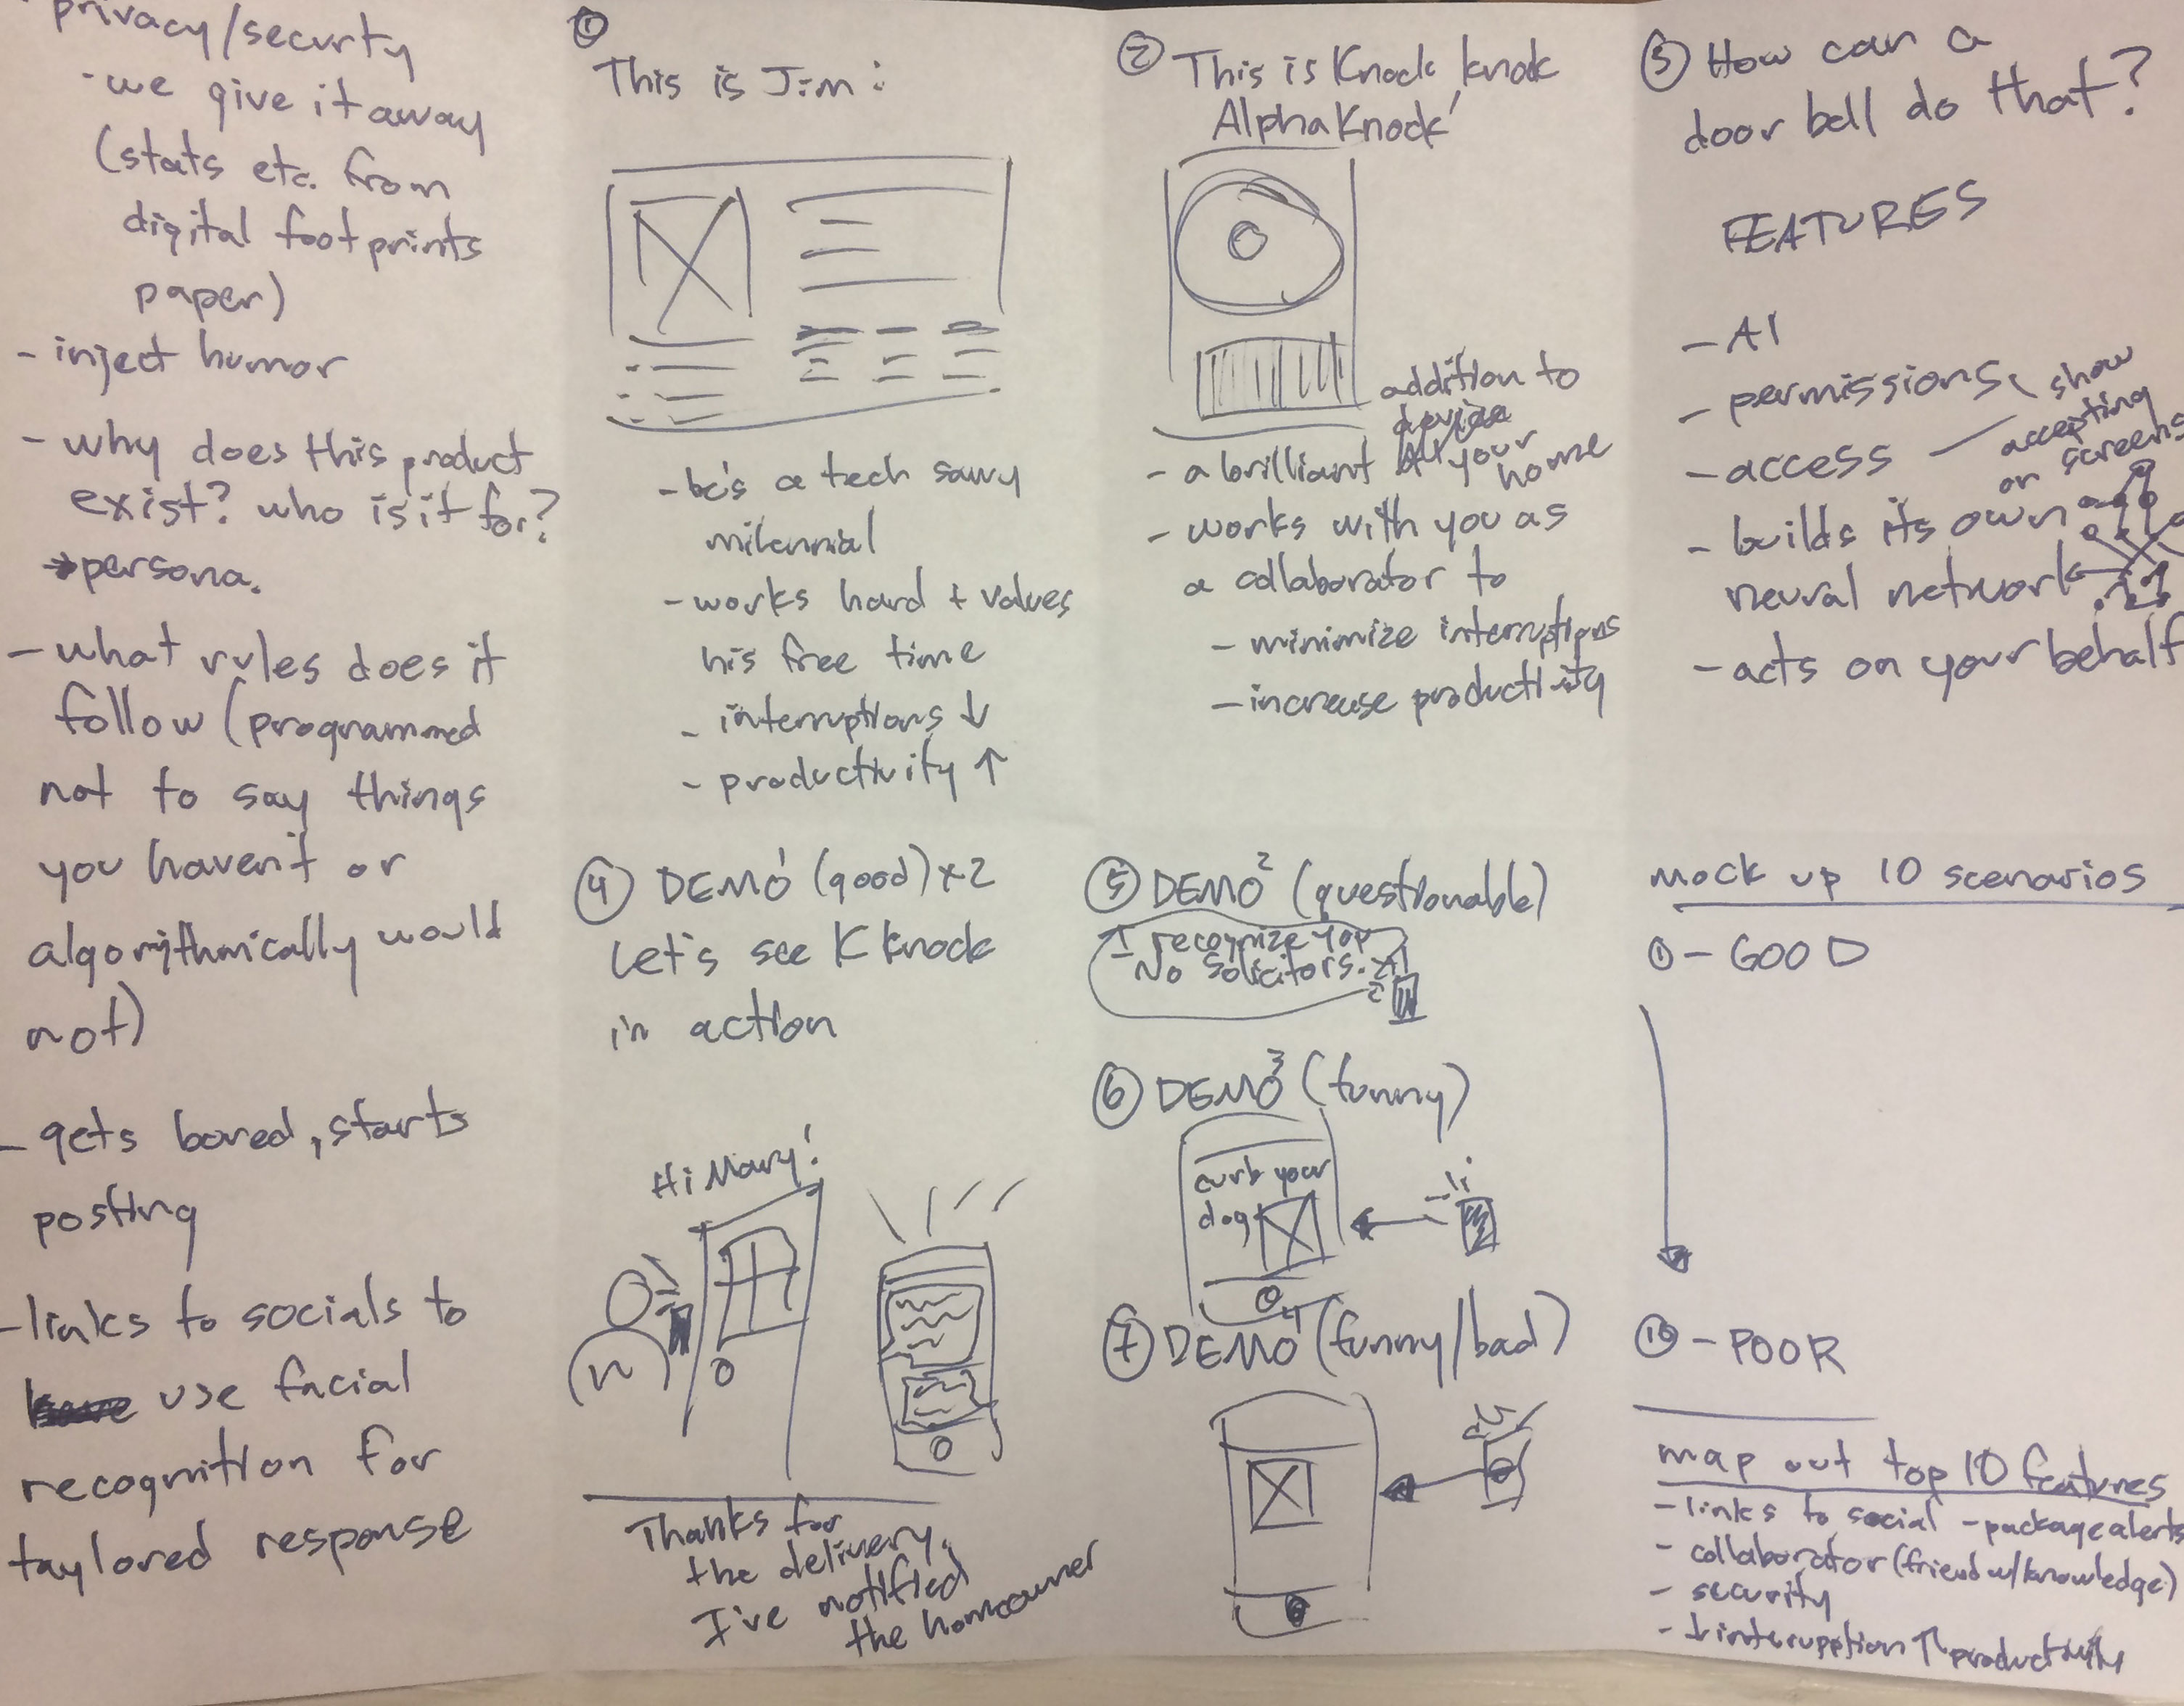 privacy/securty
- we give it away
(stats etc. from
digital footprints
paper)
- inject humor
- why does this product
exist? who is it for?
→ persona.
- what rules does it
follow (programmed
not to say things
you haven't or
algorythmically would
not)
- gets bored, starts
posting
- links to socials to
use facial
recognition for
taylored response
①
This is Jim:
- he's a tech savvy
milennial
- works hard + values
his free time
- interruptions ↓
- productivity ↑
② This is Knock knock
AlphaKnock'
addition to
device
- a brilliant your
home
- works with you as
a collaborator to
- minimize interruptions
- increase productivity
③ How can a
door bell do that?
FEATURES
- AI
- permissions
- access
show
accepting
on screens
- builds its own
neural network
- acts on your behalf
④ DEMO¹ (good) x2
Let's see K Knock
in action
Hi Mary!
Thanks for
the delivery,
I've notified
the homeowner
⑤ DEMO² (questionable)
I recognize you
No solicitors.
⑥ DEMO³ (funny)
curb your
dog
⑦ DEMO⁴ (funny/bad)
mock up 10 scenarios
① - GOOD
⑩ - POOR
map out top 10 features
- links to social - package alerts
- collaborator (friend w/knowledge)
- security
- ↓ interupption ↑ productivity